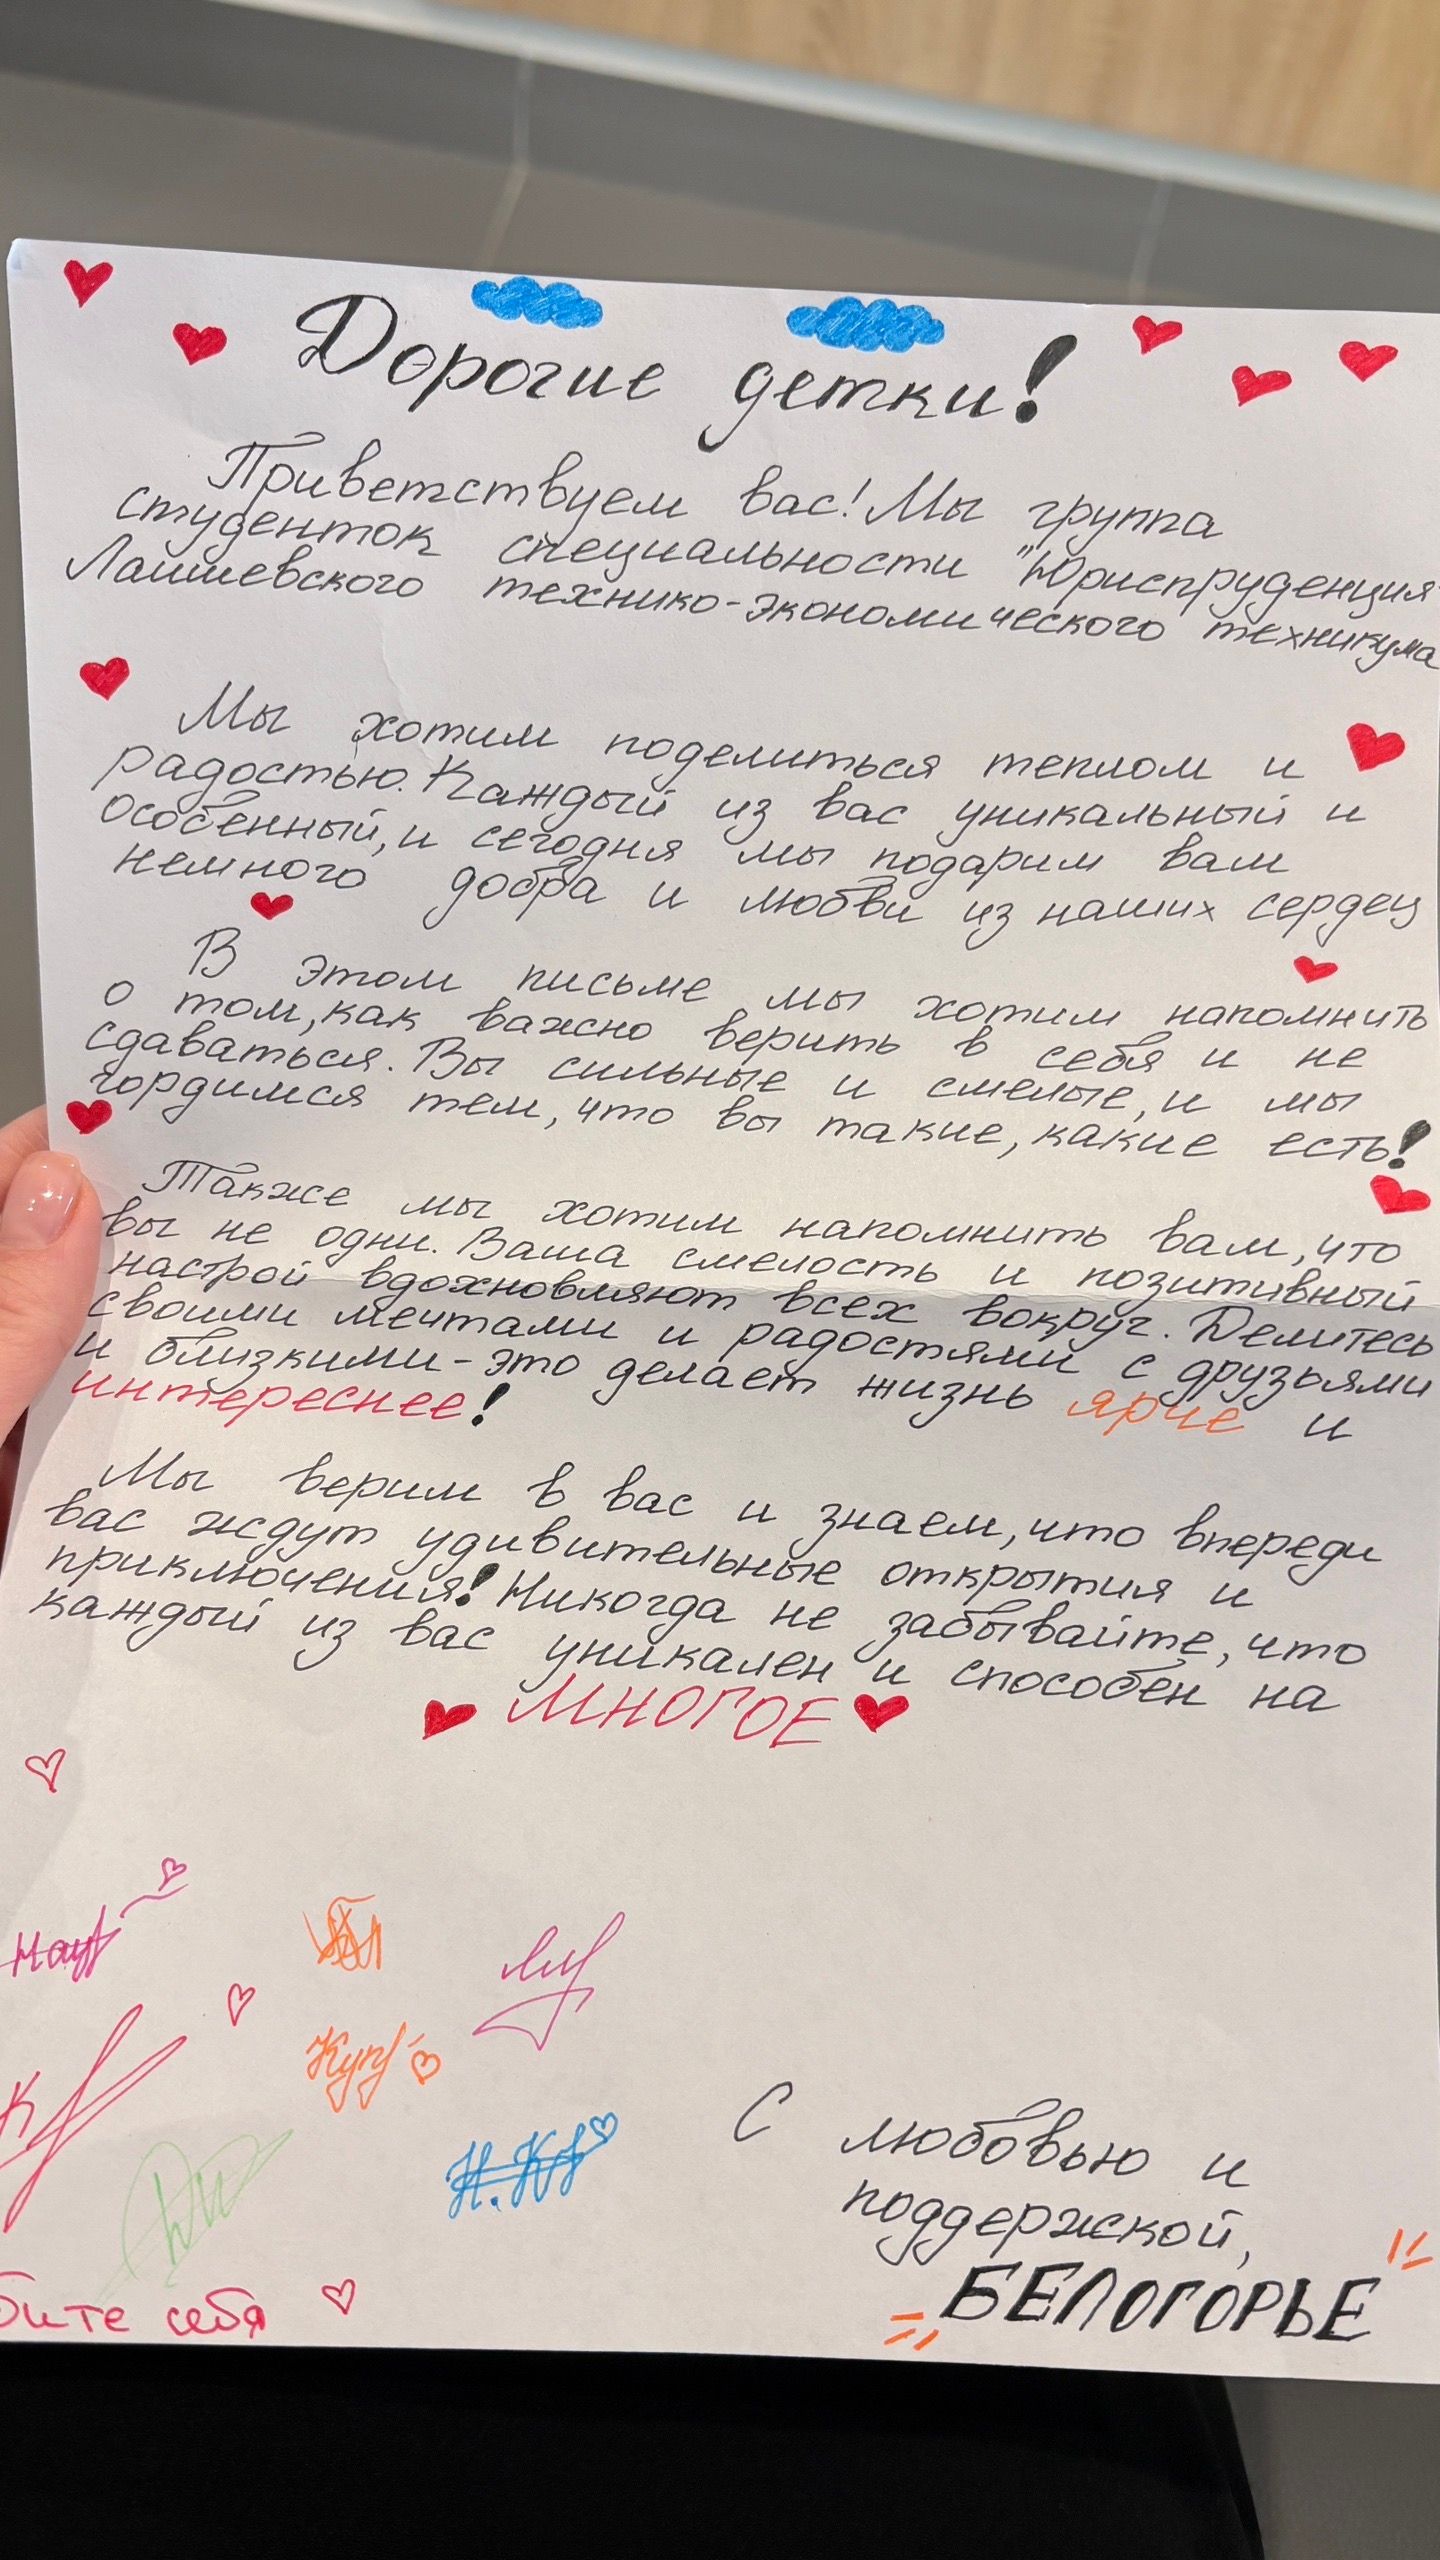 Дорогие детки!
Приветствуем вас! Мы группа
студенток специальности "Юриспруденция
Лаишевского технико-экономического техникума
Мы хотим поделиться теплом и
радостью. Каждый из вас уникальный и
особенный, и сегодня мы подарим вам
немного добра и любви из наших сердец
В этом письме мы хотим напомнить
о том, как важно верить в себя и не
сдаваться. Вы сильные и смелые, и мы
гордимся тем, что вы такие, какие есть!
Также мы хотим напомнить вам, что
вы не одни. Ваша смелость и позитивный
настрой вдохновляют всех вокруг. Делитесь
своими мечтами и радостями с друзьями
и близкими - это делает жизнь ярче и
интереснее!
Мы верим в вас и знаем, что впереди
вас ждут удивительные открытия и
приключения! Никогда не забывайте, что
каждый из вас уникален и способен на
МНОГОЕ
С любовью и
поддержкой,
БЕЛОГОРЬЕ
бите себя